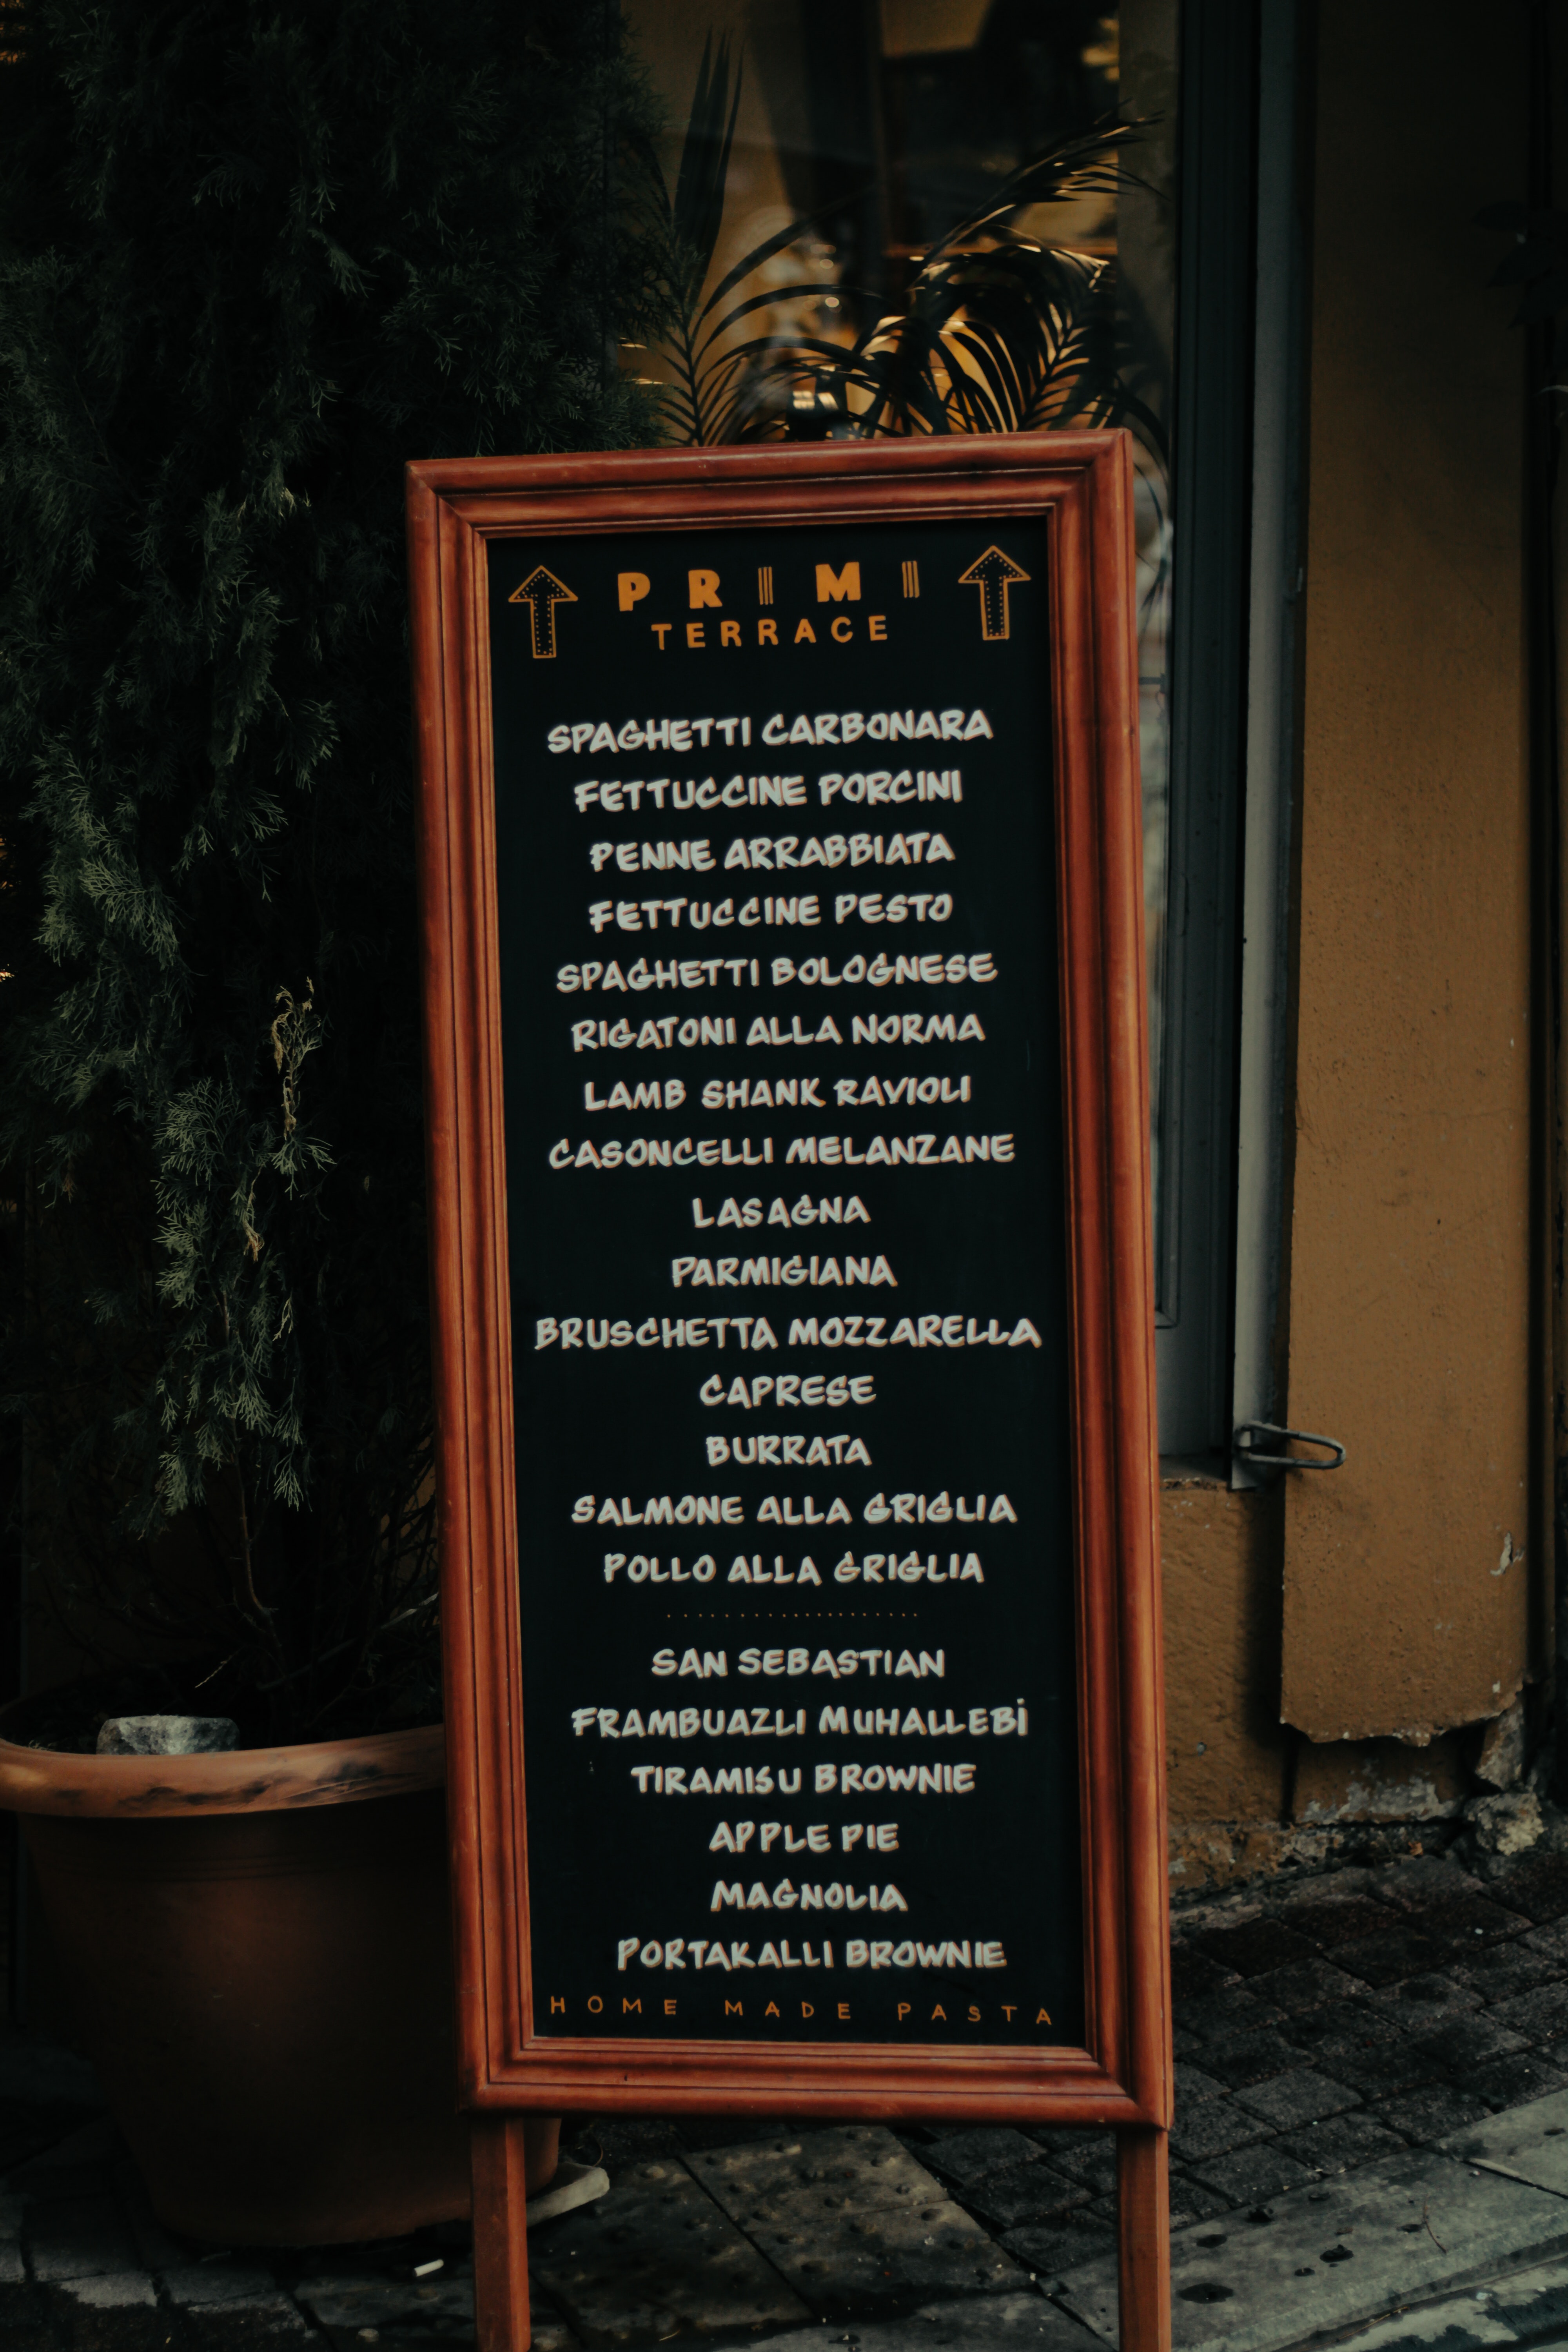 PRIMI
TERRACE
SPAGHETTI CARBONARA
FETTUCCINE PORCINI
PENNE ARRABBIATA
FETTUCCINE PESTO
SPAGHETTI BOLOGNESE
RIGATONI ALLA NORMA
LAMB SHANK RAVIOLI
CASONCELLI MELANZANE
LASAGNA
PARMIGIANA
BRUSCHETTA MOZZARELLA
CAPRESE
BURRATA
SALMONE ALLA GRIGLIA
POLLO ALLA GRIGLIA
SAN SEBASTIAN
FRAMBUAZLI MUHALLEBİ
TIRAMISU BROWNIE
APPLE PIE
MAGNOLIA
PORTAKALLI BROWNIE
HOME MADE PASTA